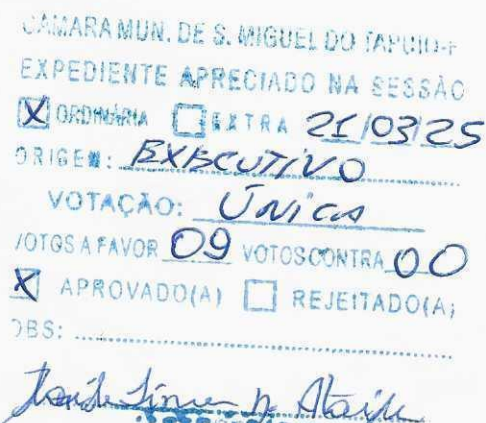 CAMARA MUN. DE S. MIGUEL DO TAPUIO-P
EXPEDIENTE APRECIADO NA SESSÃO
X ORDINÁRIA EXTRA 21/03/25
ORIGEM: EXECUTIVO
VOTAÇÃO: ÚNICA
VOTOS A FAVOR 09 VOTOS CONTRA 00
X APROVADO(A) REJEITADO(A)
OBS: